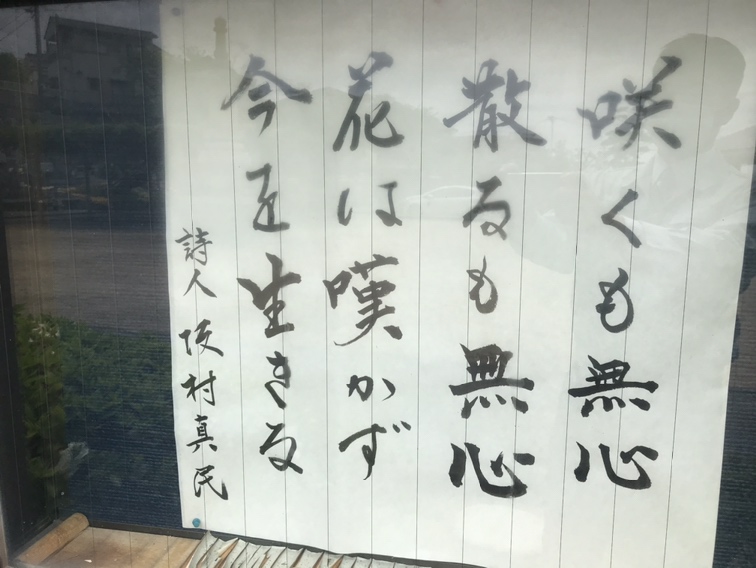 咲くも無心
散るも無心
花は嘆かず
今を生きる
詩人 坂村真民